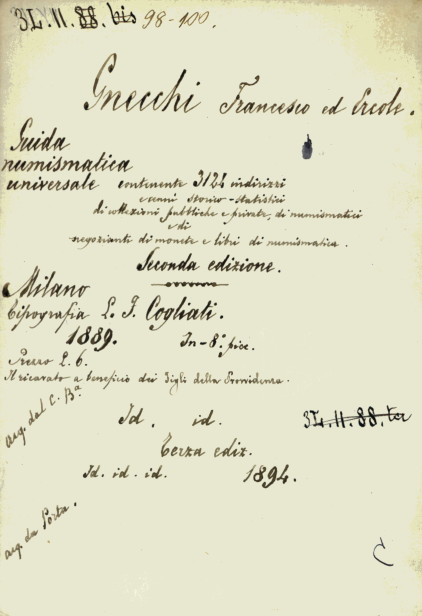 3L. 11. 88. bis 98-100.
Gnecchi Francesco ed Ercole.
Guida
numismatica
universale contenente 3124 indirizzi
e cenni storico-statistici
di collezioni pubbliche e private, di numismatici
e di
negozianti di monete e libri di numismatica.
Seconda edizione.
Milano
Tipografia L. F. Cogliati.
1889. In-8° picc.
Prezzo L. 6.
Il ricavato a beneficio dei Figli della Provvidenza.
acq. dal C. Bª
Id. id. 3L. 11. 88. ter
Terza ediz.
Id. id. id. 1894.
acq. da Porta.
C